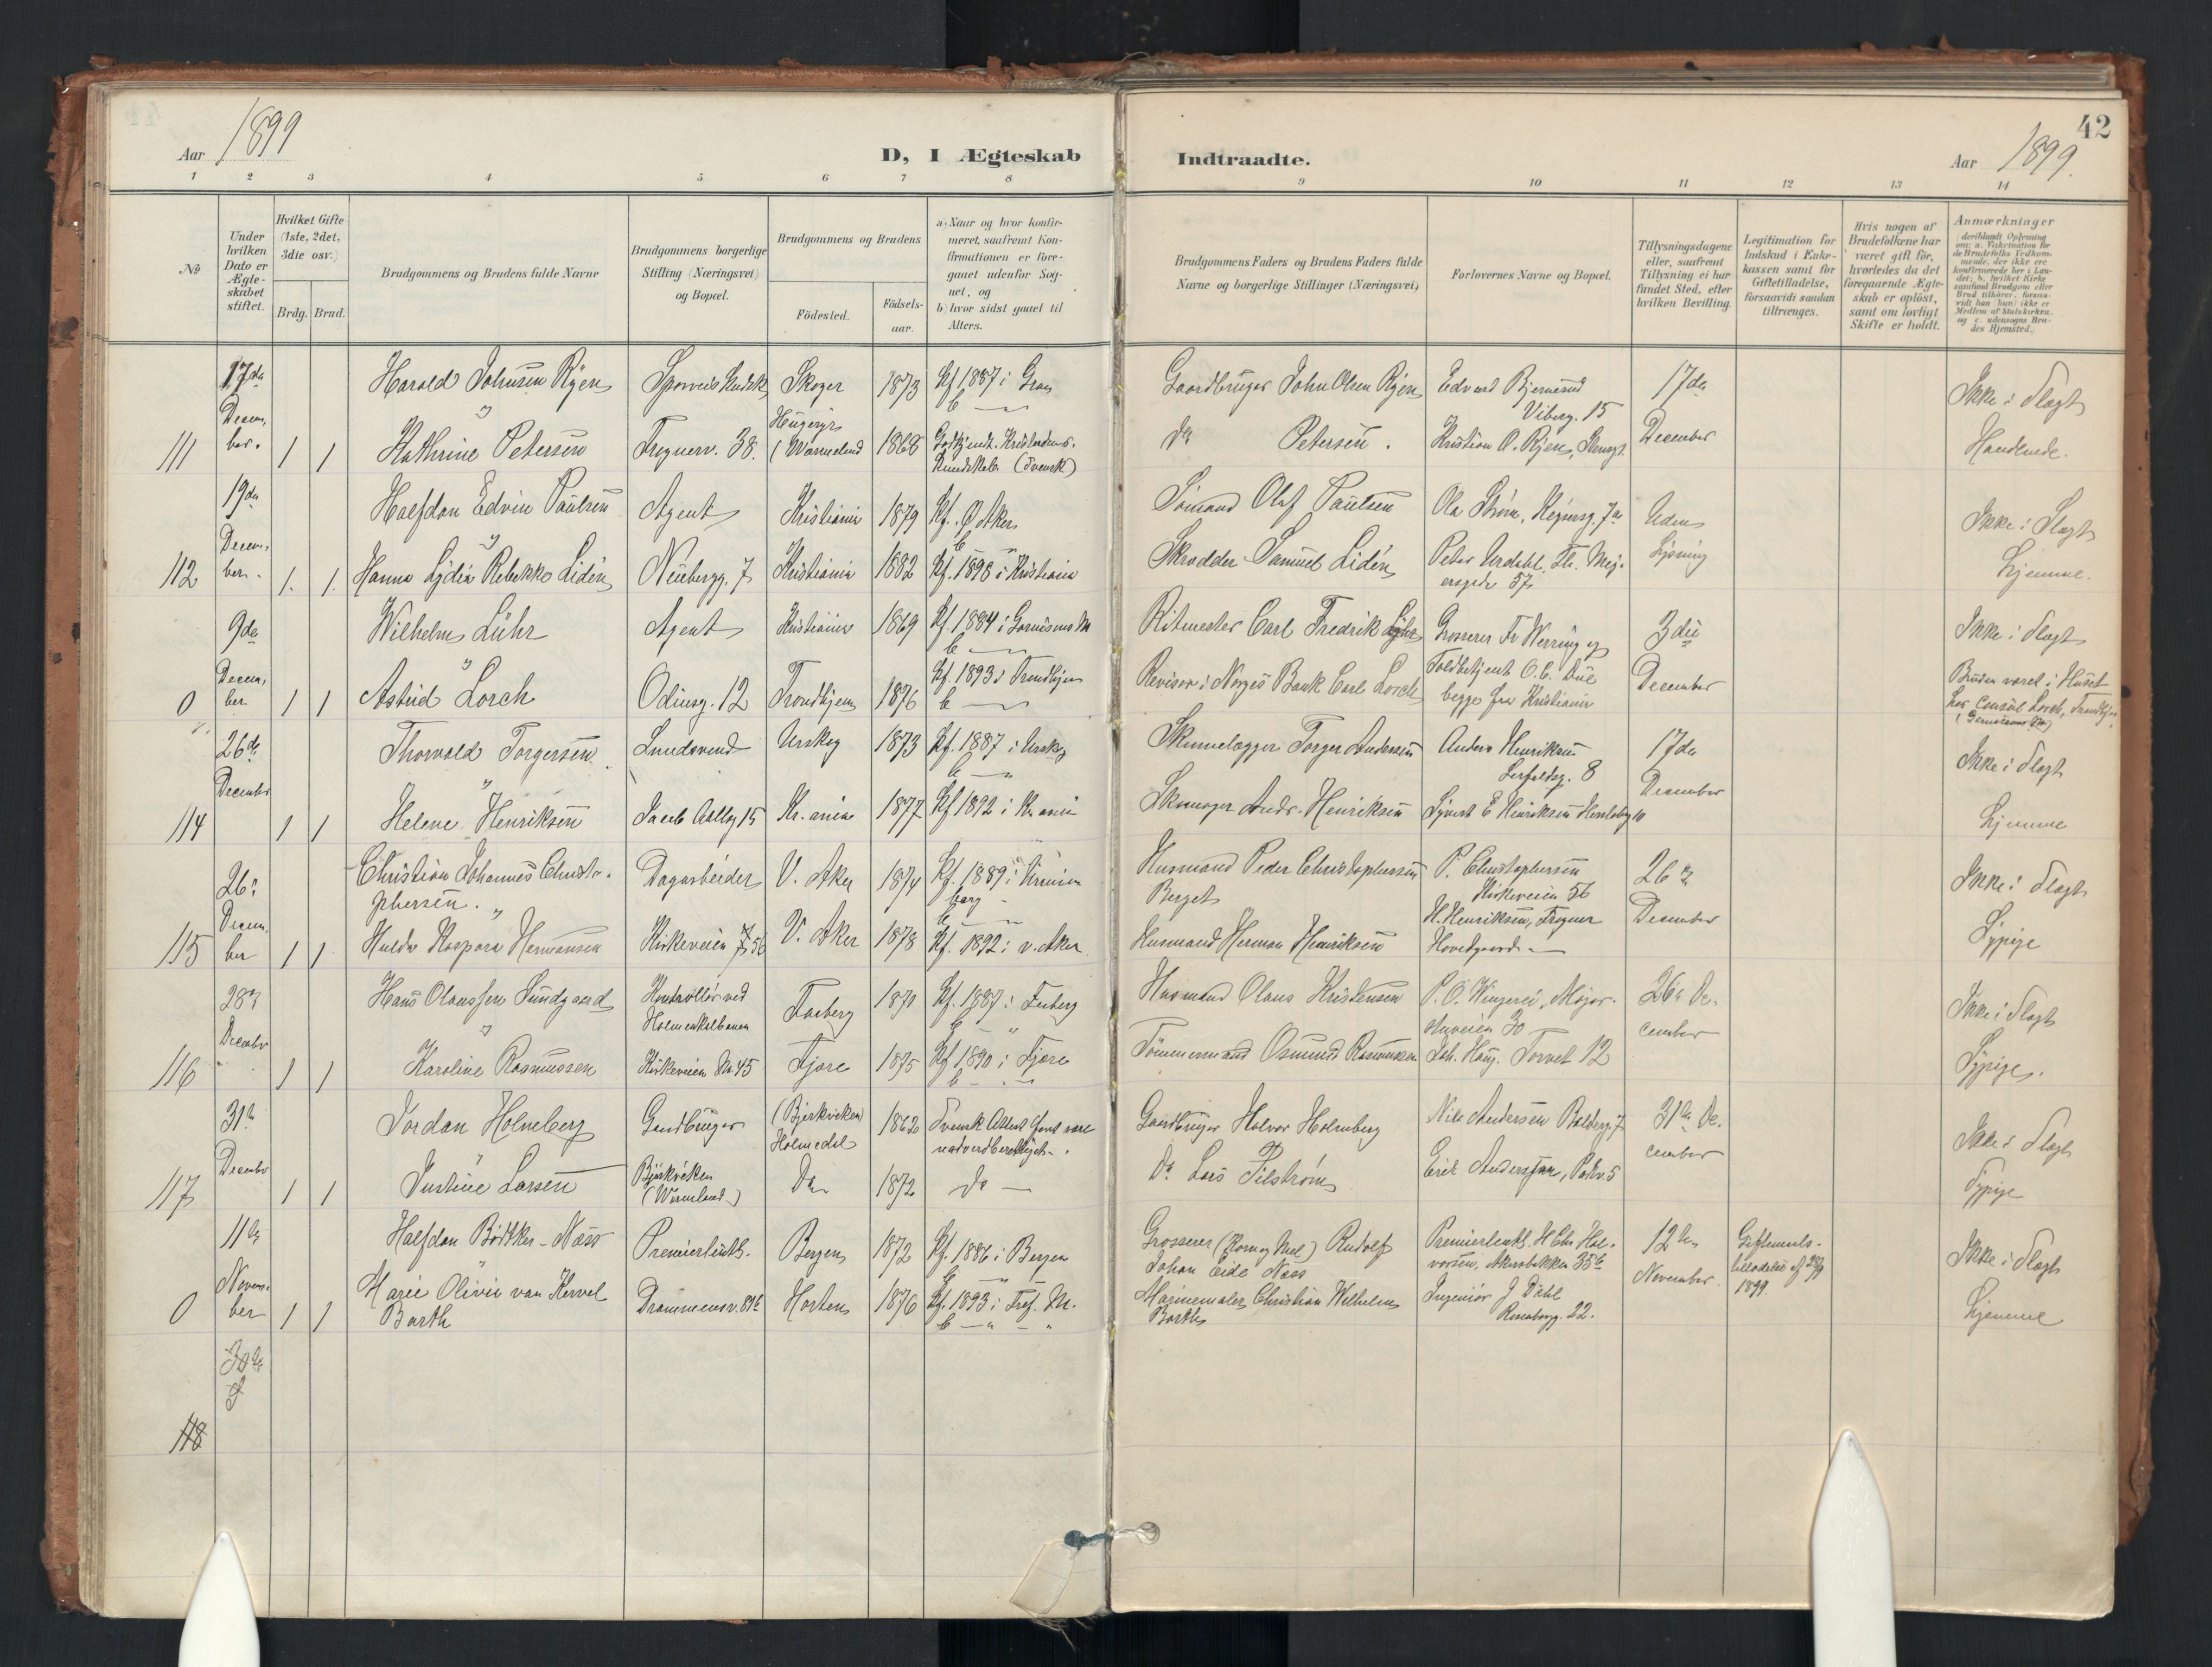 42
Aar 1899
D, I Ægteskab
Indtraadte.
Aar 1899.
1 2 3 4 5 6 7 8 9 10 11 12 13 14
No
Under
hvilken
Dato er
Ægte-
skabet
stiftet.
Hvilket Gifte
(1ste, 2det,
3die osv.)
Brdg. Brud.
Brudgommens og Brudens fulde Navne
Brudgommens borgerlige
Stilling (Næringsvei)
og Bopæl.
Brudgommens og Brudens
Födested.
Födsels-
aar.
a) Naar og hvor konfir-
meret, saafremt Kon-
firmationen er fore-
gaaet udenfor Sog-
net, og
b) hvor sidst gaaet til
Alters.
Brudgommens Faders og Brudens Faders fulde
Navne og borgerlige Stillinger (Næringsvei)
Forlovernes Navne og Bopæl.
Tillysningsdagene
eller, saafremt
Tillysning ei har
fundet Sted, efter
hvilken Bevilling.
Legitimation for
Indskud i Enke-
kassen samt for
Giftetilladelse,
forsaavidt saadan
tiltrænges.
Hvis nogen af
Brudefolkene har
været gift för,
hvorledes da det
foregaaende Ægte-
skab er oplöst,
samt om lovligt
Skifte er holdt.
Anmærkninger
(deriblandt Oplysning
om: a. Vakcination for
de Brudefolks Vedkom-
mende, der ikke ere
konfirmerede her i Lan-
det; b. hvilket Kirke-
samfund Brudgom eller
Brud tilhører, forsaa-
vidt han (hun) ikke er
Medlem af Statskirken,
og c. udensogns Bru-
des Hjemsted.)
111
17de
Decem,
ber.
1 1
Harald Johnsen Ryen
Kathrine Petersen
Sporveis Kudsk
Frognerv. 38.
Skoger
(Wärmeland
1873
1868
Kf 1887 i Gran
Godkjendt. Kristendoms.
Kundskab. (svensk)
Gaardbruger John Olsen Ryen
Do Petersen.
Edvard Bjernerud
Viberg. 15
Kristian O. Ryen,
17de
December
Ikke i Slægt
112
19de
Decem,
ber.
1. 1.
Halfdan Edvin Paulsen
Hanna Lydia Rebekka Lidén
Agent
Neubergg. 7
Kristiania
Kristiania
1879
1882
Kf. Ø. Aker
Kf. 1898 i Kristiania
Sømand Olaf Paulsen
Skrædder Samuel Lidén
Ola Strøm, Keysersg. 7a
Peter Urdahl, Th. Mey-
ersgade 57
Uden
Lysning
Ikke i Slægt
Hjemme.
0
9de
Decem,
ber
1 1
Wilhelm Lühr
Astrid Lorch
Agent
Odinsg. 12
Kristiania
Trondhjem
1869
1876
Kf. 1884 i Garnisons M
Kf. 1893 i Trondhjem
b
Ritmester Carl Fredrik Lühr
Revisor i Norges Bank Carl Lorch
Grosserer Fr Werring og
Toldbetjent O. C. Due
begge fra Kristiania
3die
December
Ikke i Slægt
Bruden været i Huset
hos Consul Lorch, Trondhjem
(Garnisons M)
114
26de
December
1 1
Thorvald Torgersen
Helene Henriksen
Landsvend
Jacob Aallsg 15
Urskog
Kr.ania
1873
1877
Kf. 1887 i Urskog
Kf 1892 i Kr.ania
Skinnelægger Torger Andersen
Skomager Andr. Henriksen
Anders Henriksen
8
Syvert E Henriksen Herslebsg 10
17de
December
Ikke i Slægt
Hjemme
115
26de
Decem,
ber
1 1
Christian Johannes Christo-
phersen.
Hulda Kaspara Hermansen
Dagarbeider
Kirkeveien 56
V. Aker
V. Aker
1874
1878
Kf. 1889 i Urani
borg
Kf. 1892 i v. Aker
Husmand Peder Christophersen
Berget
Husmand Herman Henriksen
P. Christophersen
Kirkeveien 56
H. Henriksen, Frogner
Hovedgaard
26de
December
Ikke i Slægt
Sypige
116
28de
December
1 1
Hans Olaussen Sundgaard
Karoline Rasmussen
Kontrollør ved
Holmenkolbanen
Kirkeveien No 45
Faaberg
Fjære
1870
1875
Kf. 1887 i Faaberg
Kf 1890 i Fjære
Husmand Olaus Kristensen
Tømmermand Osmund Rasmussen
P. O. Wingerei, Major-
stuveien 30
Joh. Haug. Torvet 12
26de De-
cember
Ikke i Slægt
Sypige.
117
31te
December
1 1
Jordan Holmberg
Justine Larsen
Gaardbruger
Björkviken
(Wärmland)
(Björkviken)
Holmedal
Do
1862
1872
Svensk Attest
nadverdberettiget.
do
Gaardbruger Halvor Holmberg
Do Lars Pilstrøm
Nils Andersen Baldersg. 7
Erik Andersson, Parkv. 5
31te De-
cember
Ikke i Slægt
Sypige
0
11te
Novem-
ber
1 1
Halfdan Bödtker-Næss
Marie Olivia van Kervel
Barth
Premierløitn.
Drammensv. 81b
Bergen
Horten
1872
1876
Kf. 1886 i Bergen
Kf. 1893 i Tref. M.
Grosserer (Korn og Mel) Rudolf
Johan Eide Næss
Marinemaler Christian Wilhelm
Barth
Premierløitn. H Chr Hal-
vorsen, Akersbakken 35b
Ingeniør J Dahl
Rosenborgg. 22.
12te
November.
Giftermåls-
tilladelse af
1899.
Ikke i Slægt
Hjemme
30te
118